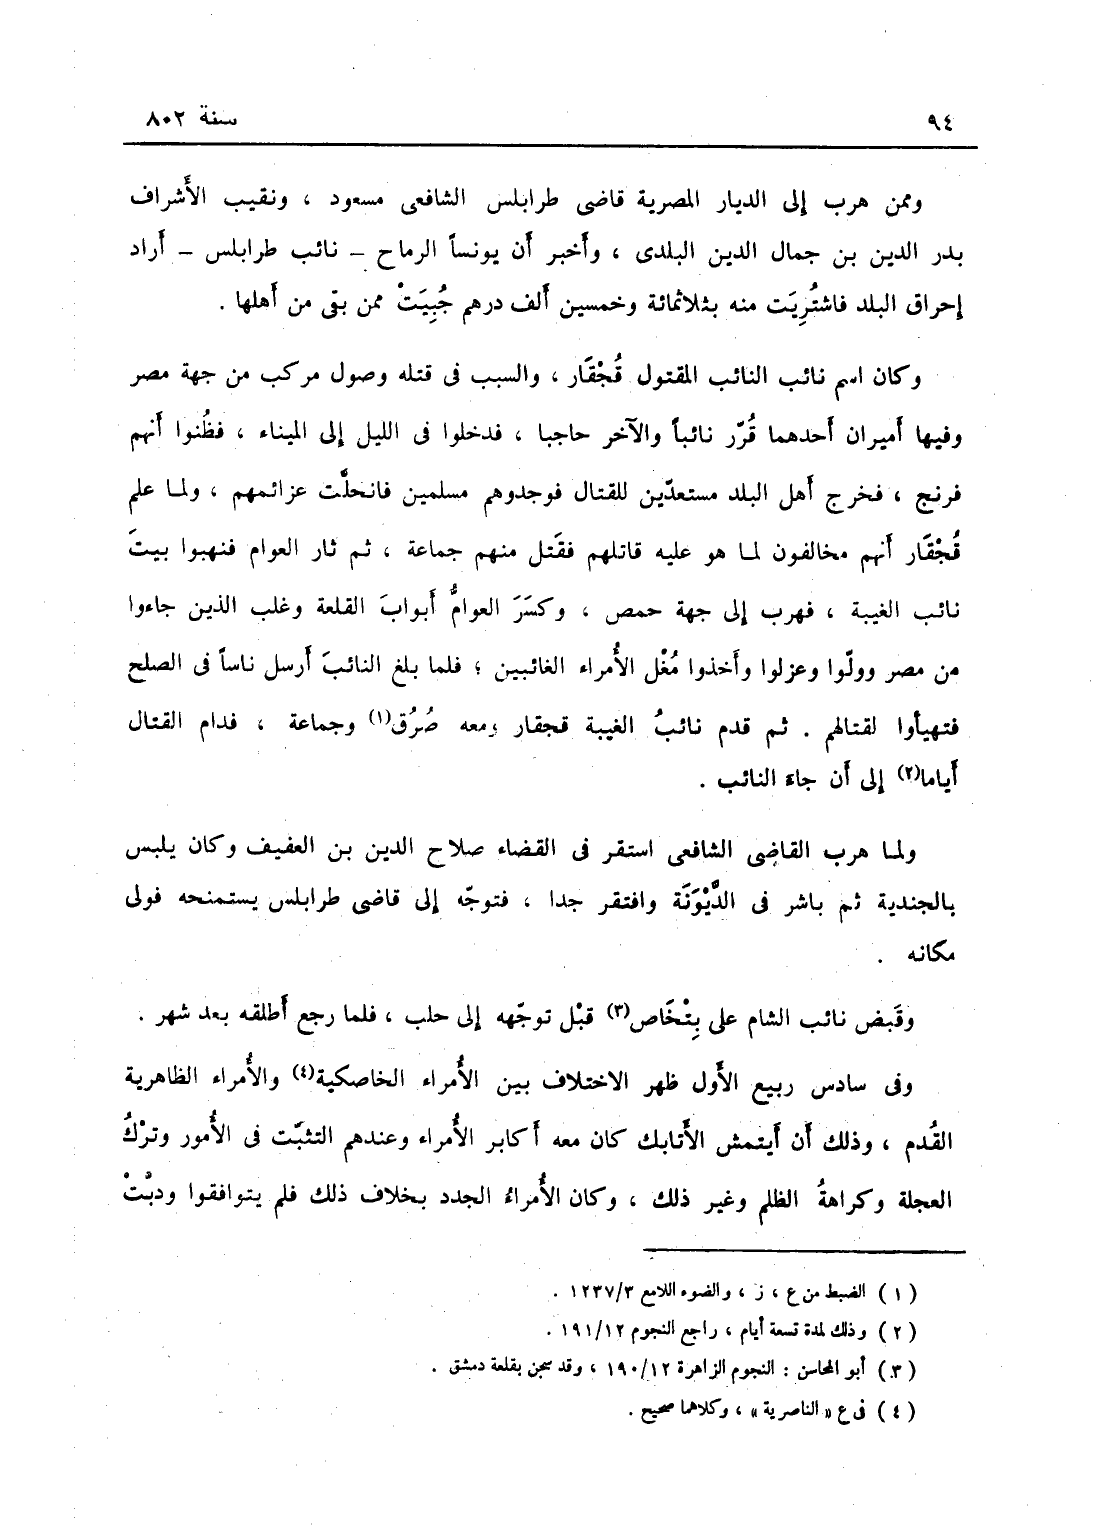 ٩٤
سنة ٨٠٢
وممن هرب إلى الديار المصرية قاضى طرابلس الشافعى مسعود ، ونقيب الأَشراف
بدر الدين بن جمال الدين البلدى ، وأَخبر أَن يونساً الرماح – نائب طرابلس – أَراد
إحراق البلد فاشتُرِيَت منه بثلاثمائة وخمسين أَلف درهم جُبِيَتْ ممن بقى من أَهلها .
وكان اسم نائب النائب المقتول قُجْقَار ، والسبب فى قتله وصول مركب من جهة مصر
وفيها أَميران أَحدهما قُرّر نائباً والآخر حاجبا ، فدخلوا فى الليل إلى الميناء ، فظُنوا أَنهم
فرنج ، فخرج أَهل البلد مستعدّين للقتال فوجدوهم مسلمين فانحلَّت عزائمهم ، ولما علم
قُجْقَار أَنهم مخالفون لما هو عليه قاتلهم فقَتل منهم جماعة ، ثم ثار العوام فنهبوا بيتَ
نائب الغيبة ، فهرب إلى جهة حمص ، وكسَرَ العوامُّ أَبوابَ القلعة وغلب الذين جاءوا
من مصر وولّوا وعزلوا وأَخذوا مُغْل الأُمراء الغائبين ؛ فلما بلغ النائبَ أَرسل ناساً فى الصلح
فتهيأوا لقتالهم . ثم قدم نائبُ الغيبة قجقار ومعه صُرُق(١) وجماعة ، فدام القتال
أَياما(٢) إلى أَن جاءَ النائب .
ولما هرب القاضى الشافعى استقر فى القضاء صلاح الدين بن العفيف وكان يلبس
بالجندية ثم باشر فى الدَّيْوَنَة وافتقر جدا ، فتوجّه إلى قاضى طرابلس يستمنحه فولى
مكانه .
وقَبض نائب الشام على بِتْخَاص(٣) قبْل توجّهه إلى حلب ، فلما رجع أَطلقه بعد شهر .
وفى سادس ربيع الأَول ظهر الاختلاف بين الأُمراء الخاصكية(٤) والأُمراء الظاهرية
القُدم ، وذلك أَن أَيتمش الأَتابك كان معه أَكابر الأُمراء وعندهم التثبّت فى الأُمور وترْكُ
العجلة وكراهةُ الظلم وغير ذلك ، وكان الأُمراءُ الجدد بخلاف ذلك فلم يتوافقوا ودبّتْ
(١) الضبط من ع ، ز ، والضوء اللامع ١٢٣٧/٣ .
(٢) وذلك لمدة تسعة أيام ، راجع النجوم ١٩١/١٢ .
(٣) أبو المحاسن : النجوم الزاهرة ١٩٠/١٢ ، وقد سجن بقلعة دمشق .
(٤) فى ع « الناصرية » ، وكلاهما صحيح .